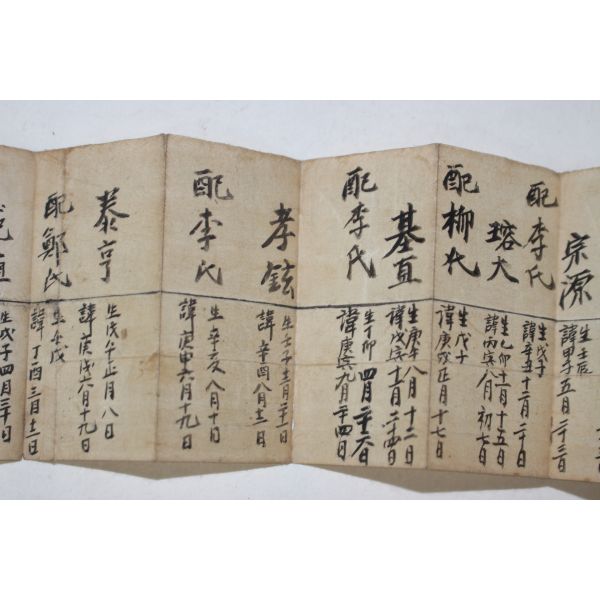 宗源
生壬辰
諱甲子五月二十三日
配李氏
生戊子
諱辛丑十二月二十日
瑢大
生乙卯十一月十五日
諱丙寅八月初七日
配柳氏
生戊子
諱庚戌正月十七日
基直
生庚午八月十二日
諱戊寅十二月二十四日
配李氏
生丁卯四月二十六日
諱庚寅九月二十四日
孝鉉
生壬子十二月二十二日
諱辛酉八月十二日
配李氏
生辛亥八月十日
諱庚申六月十九日
泰亨
生戊午正月八日
諱庚戌六月十九日
配鄭氏
生壬戌
諱丁酉三月十二日
生戊子四月三十日